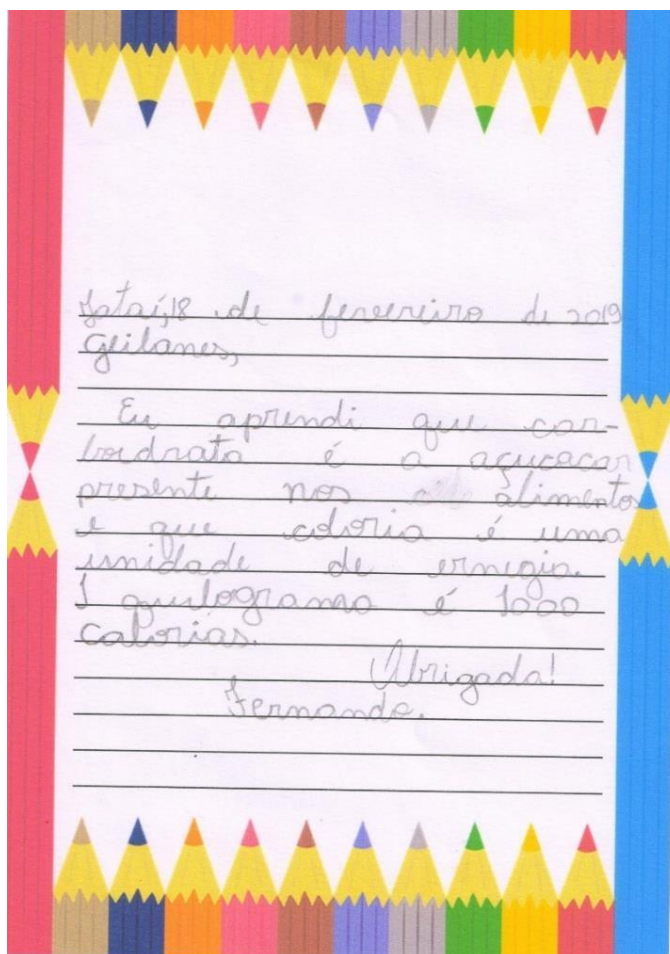 Jataí, 18 de fevereiro de 2019
Geilanes,
Eu aprendi que car-
boidrata é a açucacar
presente nos alimentos
e que caloria é uma
unidade de ernegia.
1 quilograma é 1000
calorias.
Obrigada!
Fernanda.